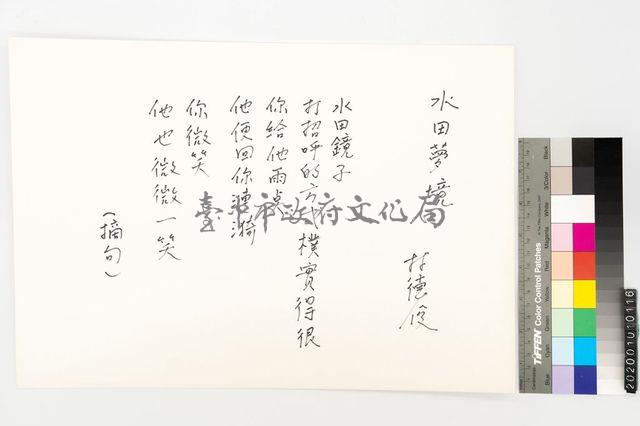 水田夢境
林德俊
水田鏡子
打招呼的方式樸實得很
你給他雨點
他便回你漣漪
你微笑
他也微微一笑
（摘句）
臺北市政府文化局
Black
3/Color
White
Magenta
Red
Yellow
Green
Cyan
Blue
TIFFEN Color Control Patches
202001010116